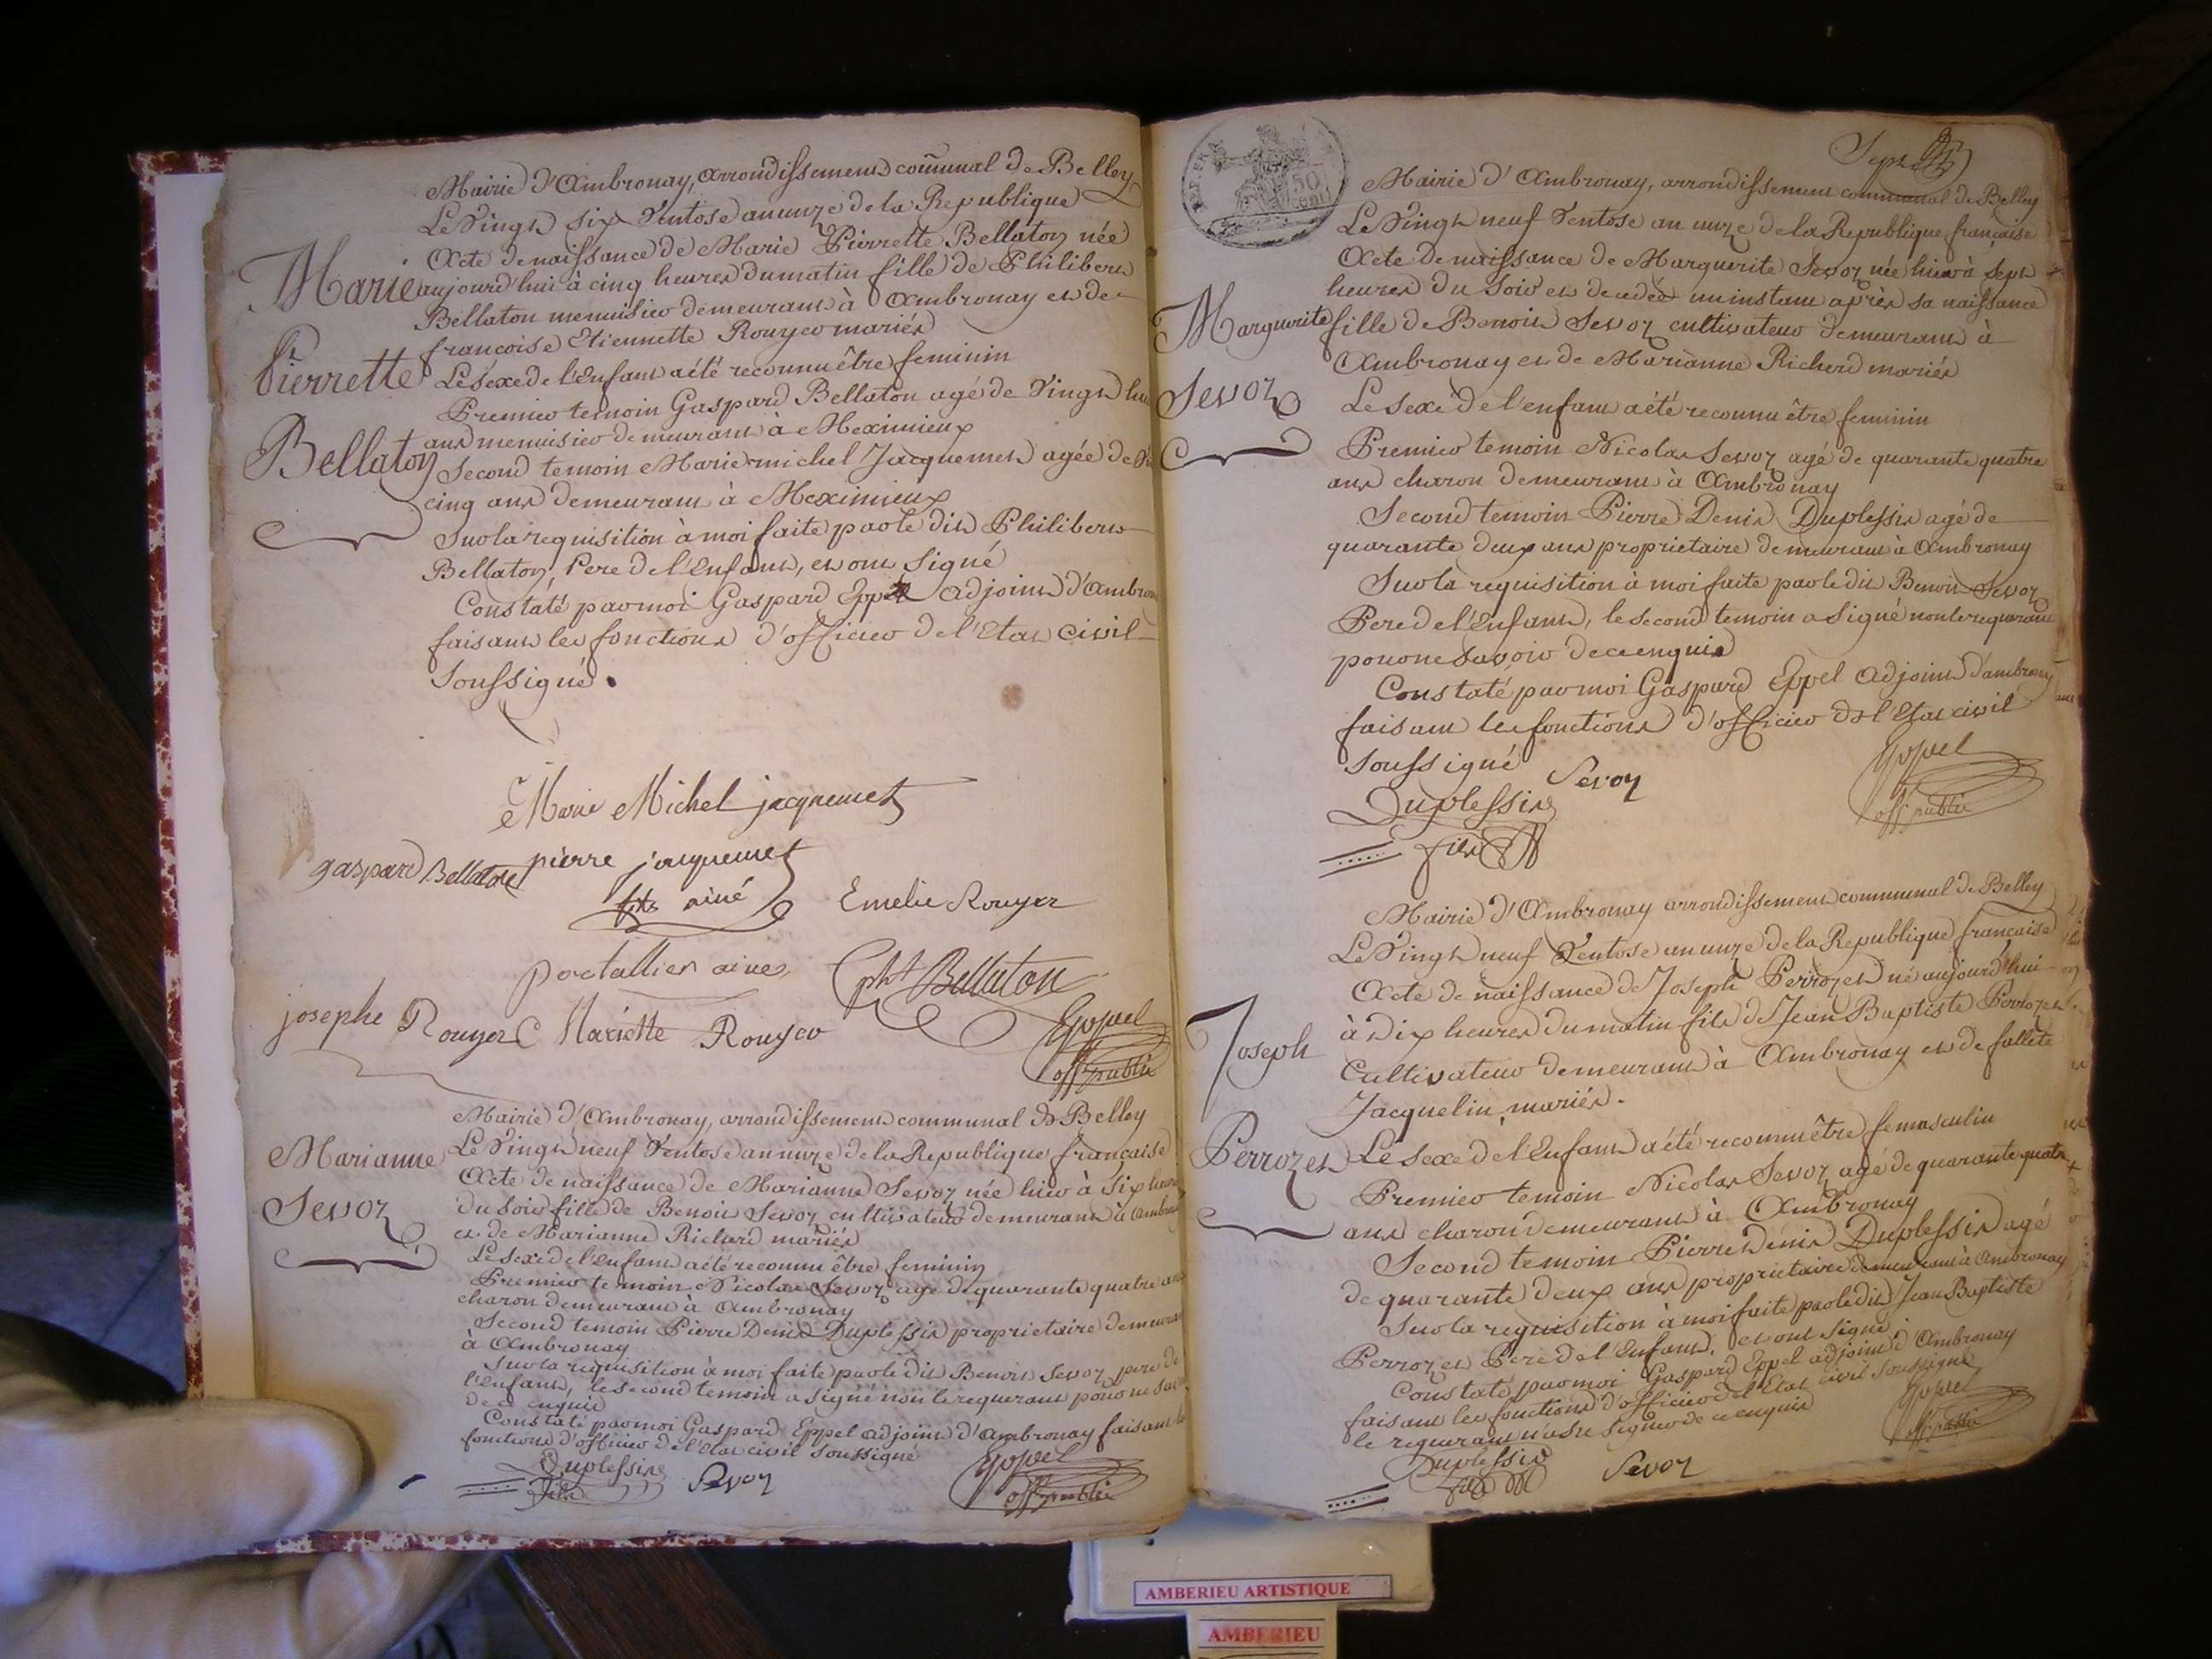 Mairie d'Ambronay, arrondissement com̄unal de Belley
Le Vingt six Ventose an unze de la Republique
Acte de naissance de Marie Pierrette Bellaton née
aujourd'hui à cinq heures du matin fille de Philibert
Bellaton menuisier demeurant à Ambronay et de
francoise Etiennette Rouyer mariés
Le sexe de l'Enfant a été reconnu être feminin
Premier temoin Gaspard Bellaton agé de Vingt
ans menuisier demeurant à Meximieux
Second temoin Marie michel Jacquemet agée de
cinq ans demeurant à Meximieux
Sur la requisition à moi faite par le dit Philibert
Bellaton, Pere de l'Enfant, et ont Signé
Constaté par moi Gaspard Eppel adjoint d'Ambron
faisant les fonctions d'officier de l'Etat civil
Soussigné.
Marie
Pierrette
Bellaton
Marie Michel jacquemet
gaspard Bellaton pierre jacquemet
fils ainé Emelie Rouyer
portallier ainé pht Bellaton
josephe Rouyer Mariette Rouyer Eppel
off. public
Mairie d'Ambronay, arrondissement communal de Belley
Le Vingt neuf Ventose an unze de la Republique française
Acte de naissance de Marianne Sevoz née hier à six heur
du soir fille de Benoit Sevoz cultivateur demeurant à Ambro
et de Marianne Richard mariés
Le sexe de l'enfant a été reconnu être feminin
Premier temoin Nicolas Sevoz agé de quarante quatre ans
charon demeurant à Ambronay
Second temoin Pierre Denis Duplessis proprietaire demeurant
à Ambronay
Sur la requisition à moi faite par le dit Benoit Sevoz pere de
l'enfant, le second temoin a signé non le requerant pour ne sav
de ce enquis
Constaté par moi Gaspard Eppel adjoint d'Ambronay faisant
fonctions d'officier de l'Etat civil soussigné
Marianne
Sevoz
Duplessis Sevoz Eppel
fils off. public
Sept
50
cent
Mairie d'Ambronay, arrondissement communal de Belley
Le Vingt neuf Ventose an unze de la Republique française
Acte de naissance de Marguerite Sevoz née hier à sept
heures du soir et decedée un instant après sa naissance
fille de Benoit Sevoz cultivateur demeurant à
Ambronay et de Marianne Richerd mariés
Le sexe de l'enfant a été reconnu être feminin
Premier temoin Nicolas Sevoz agé de quarante quatre
ans charon demeurant à Ambronay
Second temoin Pierre Denis Duplessis agé de
quarante deux ans proprietaire demeurant à Ambronay
Sur la requisition à moi faite par le dit Benoit Sevoz
Pere de l'Enfant, le second temoin a Signé non le requerant
pour ne savoir de ce enquis
Constaté par moi Gaspard Eppel adjoint d'ambronay
faisant les fonctions d'officier de l'Etat civil
Soussigné
Marguerite
Sevoz
Sevoz Eppel
Duplessis off. public
fils
Mairie d'Ambronay arrondissement communal de Belley
Le Vingt neuf Ventose an unze de la Republique française
Acte de naissance de Joseph Perrozet né aujourd'hui
à dix heures du matin fils de Jean Baptiste Perrozet
Cultivateur demeurant à Ambronay et de fallete
Jacquelin mariés.
Le sexe de l'Enfant a été reconnu être femasculin
Premier temoin Nicolas Sevoz agé de quarante quatre
ans charon demeurant à Ambronay
Second temoin Pierre Denis Duplessis agé
de quarante deux ans proprietaire demeurant à Ambronay
Sur la requisition à moi faite par le dit Jean Baptiste
Perrozet Pere de l'Enfant, et ont signé
Constaté par moi Gaspard Eppel adjoint d'Ambronay
faisant les fonctions d'officier de l'Etat civil soussigné
le requerant n'a su signer de ce enquis
Joseph
Perrozet
Eppel
off. public
Duplessis Sevoz
fils
AMBERIEU ARTISTIQUE
AMBERIEU